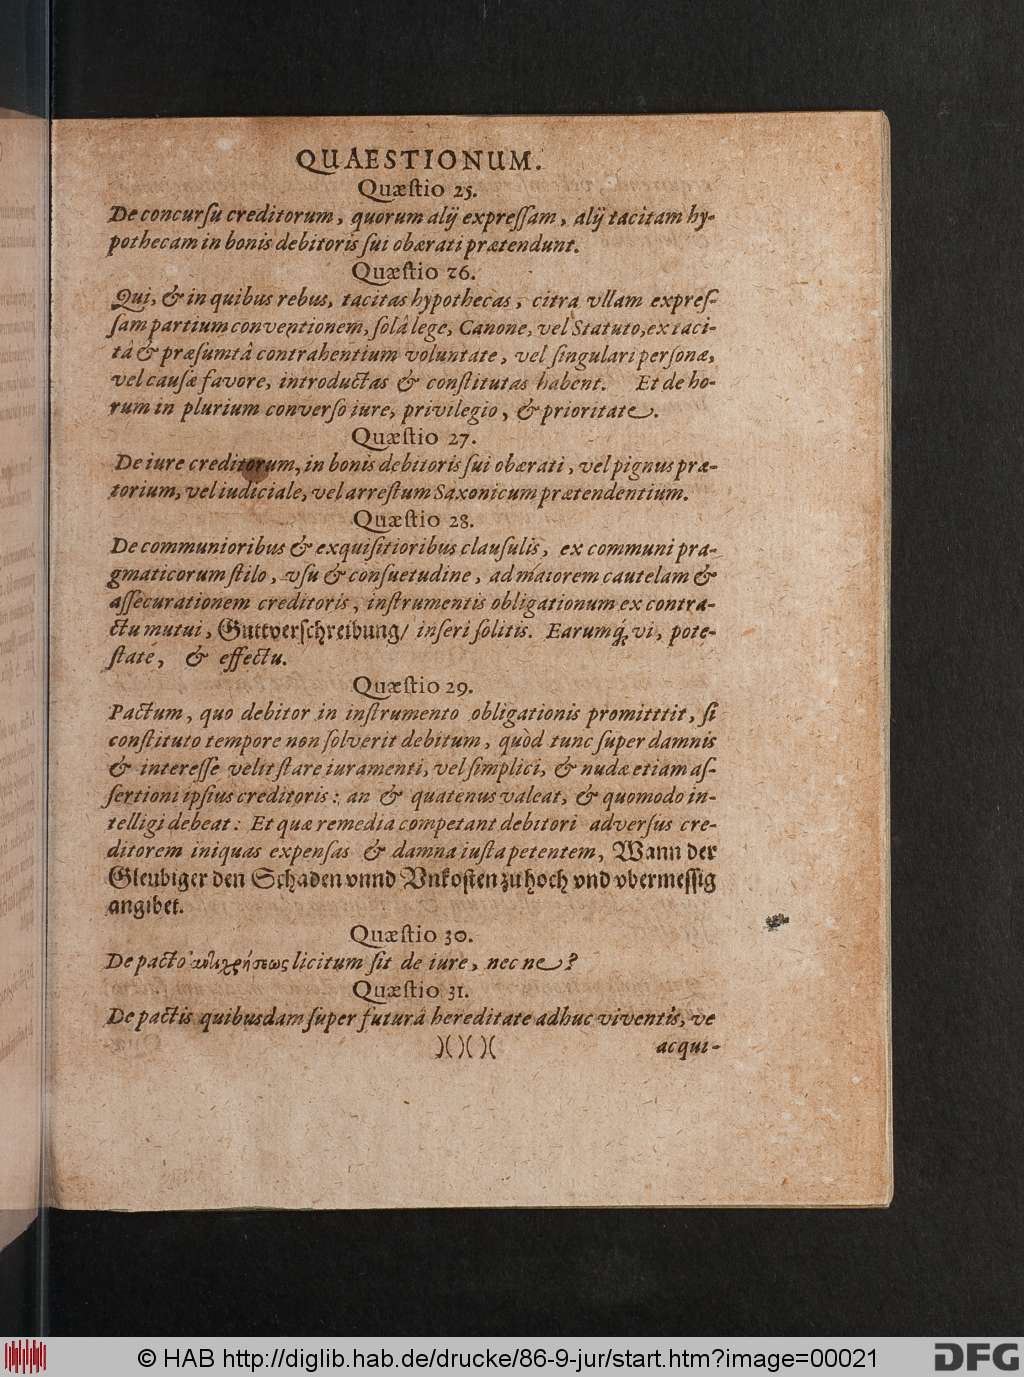 QUAESTIONUM.
Quæſtio 25.
De concurſu creditorum, quorum alij expreſſam, alij tacitam hy-
pothecam in bonis debitoris ſui obærati prætendunt.
Quæſtio 26.
Qui, & in quibus rebus, tacitas hypothecas, citra vllam expreſ-
ſam partium conventionem, ſolâ lege, Canone, vel Statuto, ex taci-
tâ & præſumtâ contrahentium voluntate, vel ſingulari perſonæ,
vel cauſæ favore, introductas & conſtitutas habent. Et de ho-
rum in plurium converſo iure, privilegio, & prioritate.
Quæſtio 27.
De iure creditorum, in bonis debitoris ſui obærati, vel pignus præ-
torium, vel iudiciale, vel arreſtum Saxonicum prætendentium.
Quæſtio 28.
De communioribus & exquiſitioribus clauſulis, ex communi pra-
gmaticorum ſtilo, vſu & conſuetudine, ad maiorem cautelam &
aſſecurationem creditoris, inſtrumentis obligationum ex contra-
ctu mutui, Guttverſchreibung/ inſeri ſolitis. Earumq́; vi, pote-
ſtate, & effectu.
Quæſtio 29.
Pactum, quo debitor in inſtrumento obligationis promitttit, ſi
conſtituto tempore non ſolverit debitum, quòd tunc ſuper damnis
& intereſſe velit ſtare iuramenti, vel ſimplici, & nudæ etiam aſ-
ſertioni ipſius creditoris: an & quatenus valeat, & quomodo in-
telligi debeat: Et quæ remedia competant debitori adverſus cre-
ditorem iniquas expenſas & damna iuſta petentem, Wann der
Gleubiger den Schaden vnnd Vnkoſten zu hoch vnd vbermeſſig
angibet.
Quæſtio 30.
De pacto ἀντιχρήσεως licitum ſit de iure, nec ne?
Quæſtio 31.
De pactis quibusdam ſuper futurâ hereditate adhuc viventis, ve
)( )( )(
acqui-
© HAB http://diglib.hab.de/drucke/86-9-jur/start.htm?image=00021
DFG